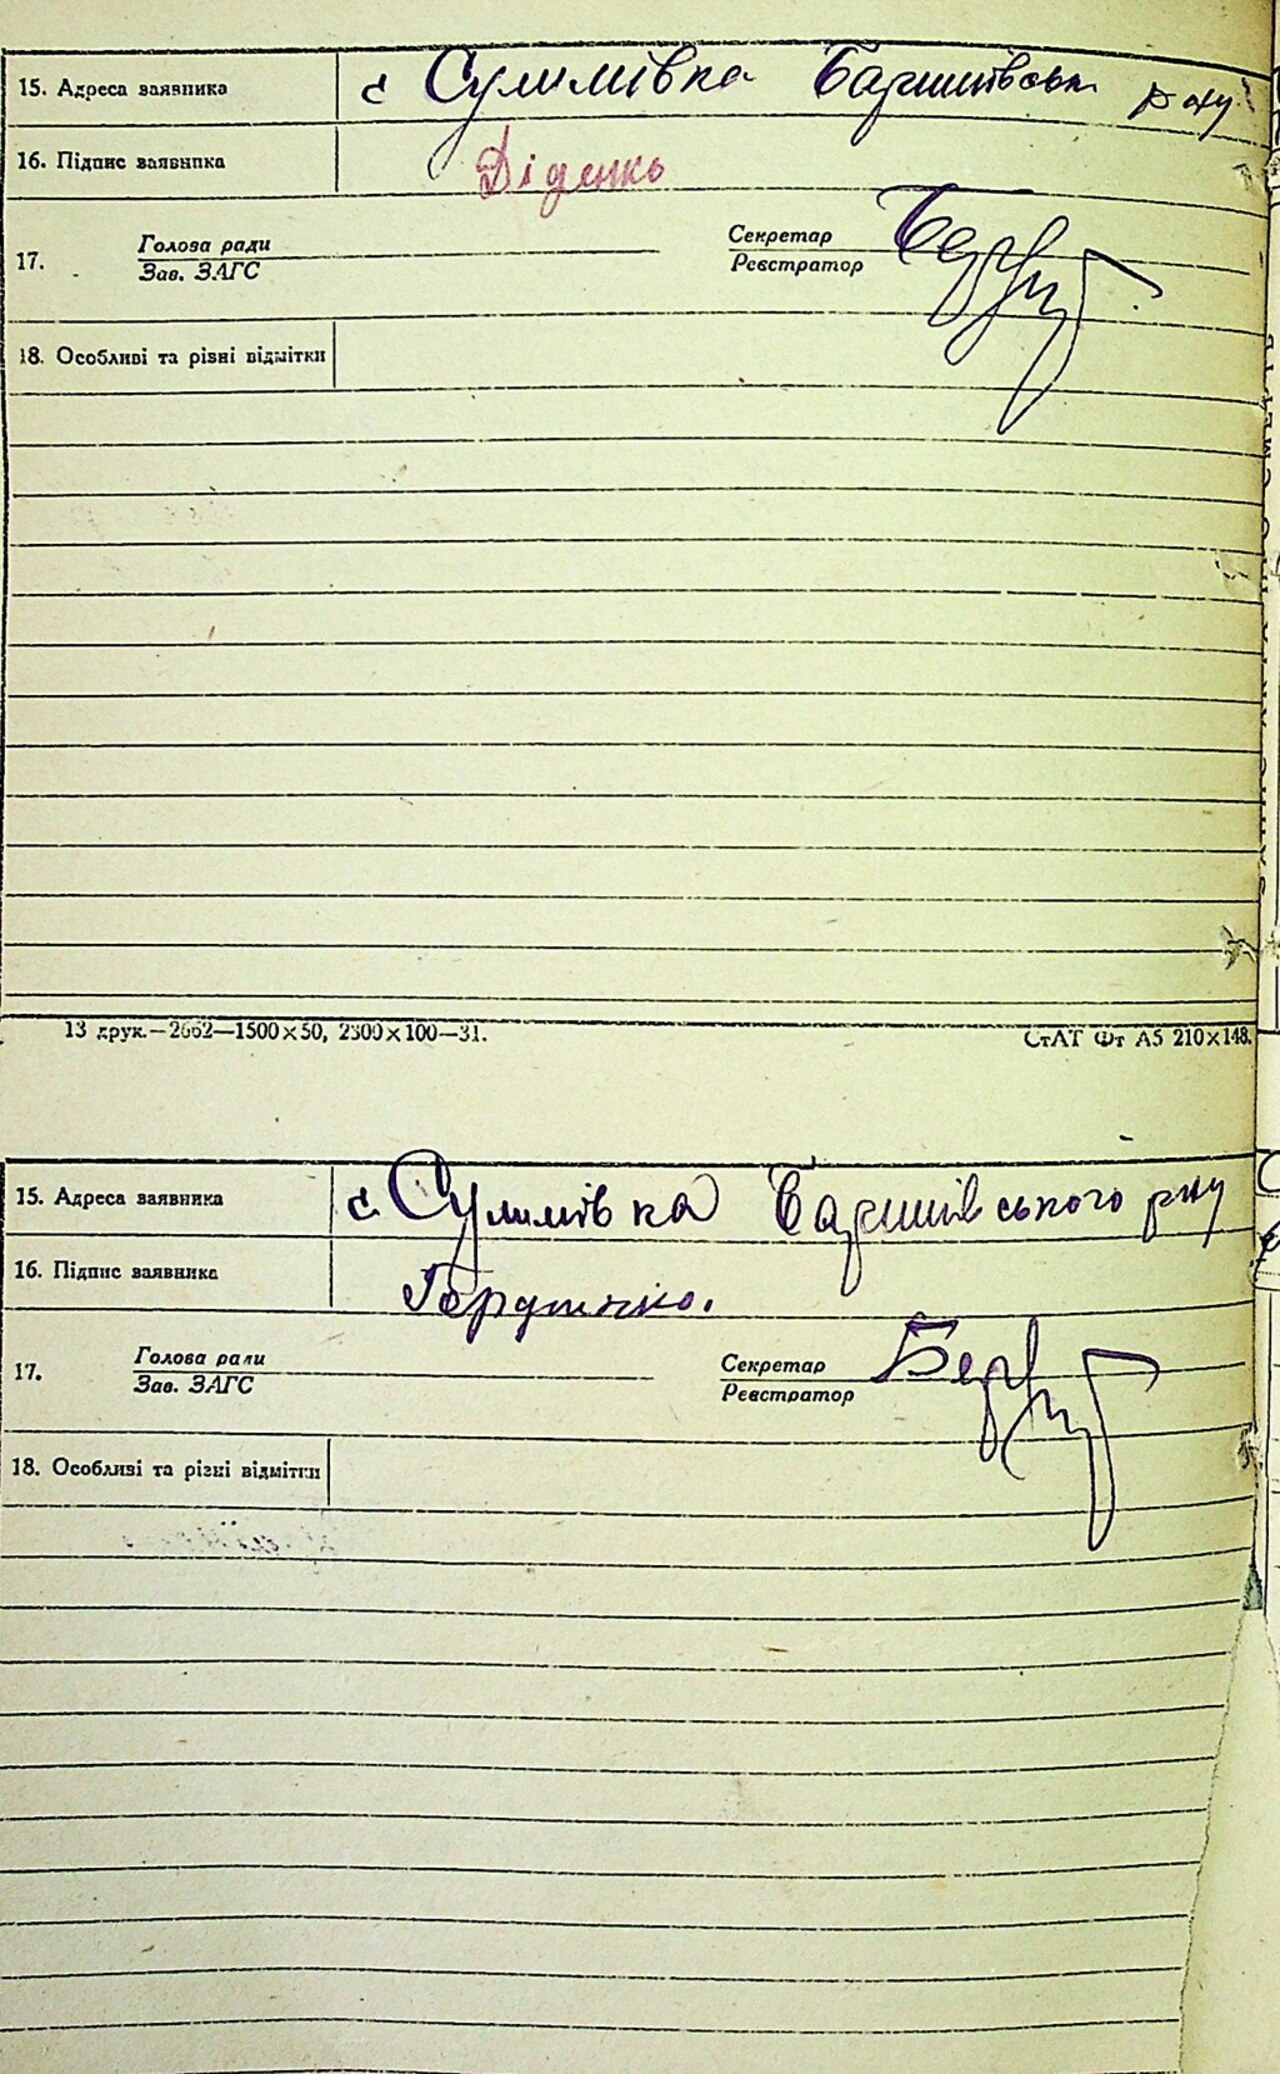 15. Адреса заявника с Сулимівка Баришівськ р-ну
16. Підпис заявника Діденко
17. Голова ради Секретар
Зав. ЗАГС Реєстратор
18. Особливі та різні відмітки
13 друк.—2662—1500×50, 2300×100—31. СтАТ Фт А5 210×148.
15. Адреса заявника с. Сулимівка Баришівського р-ну
16. Підпис заявника
17. Голова ради Секретар
Зав. ЗАГС Реєстратор
18. Особливі та різні відмітки